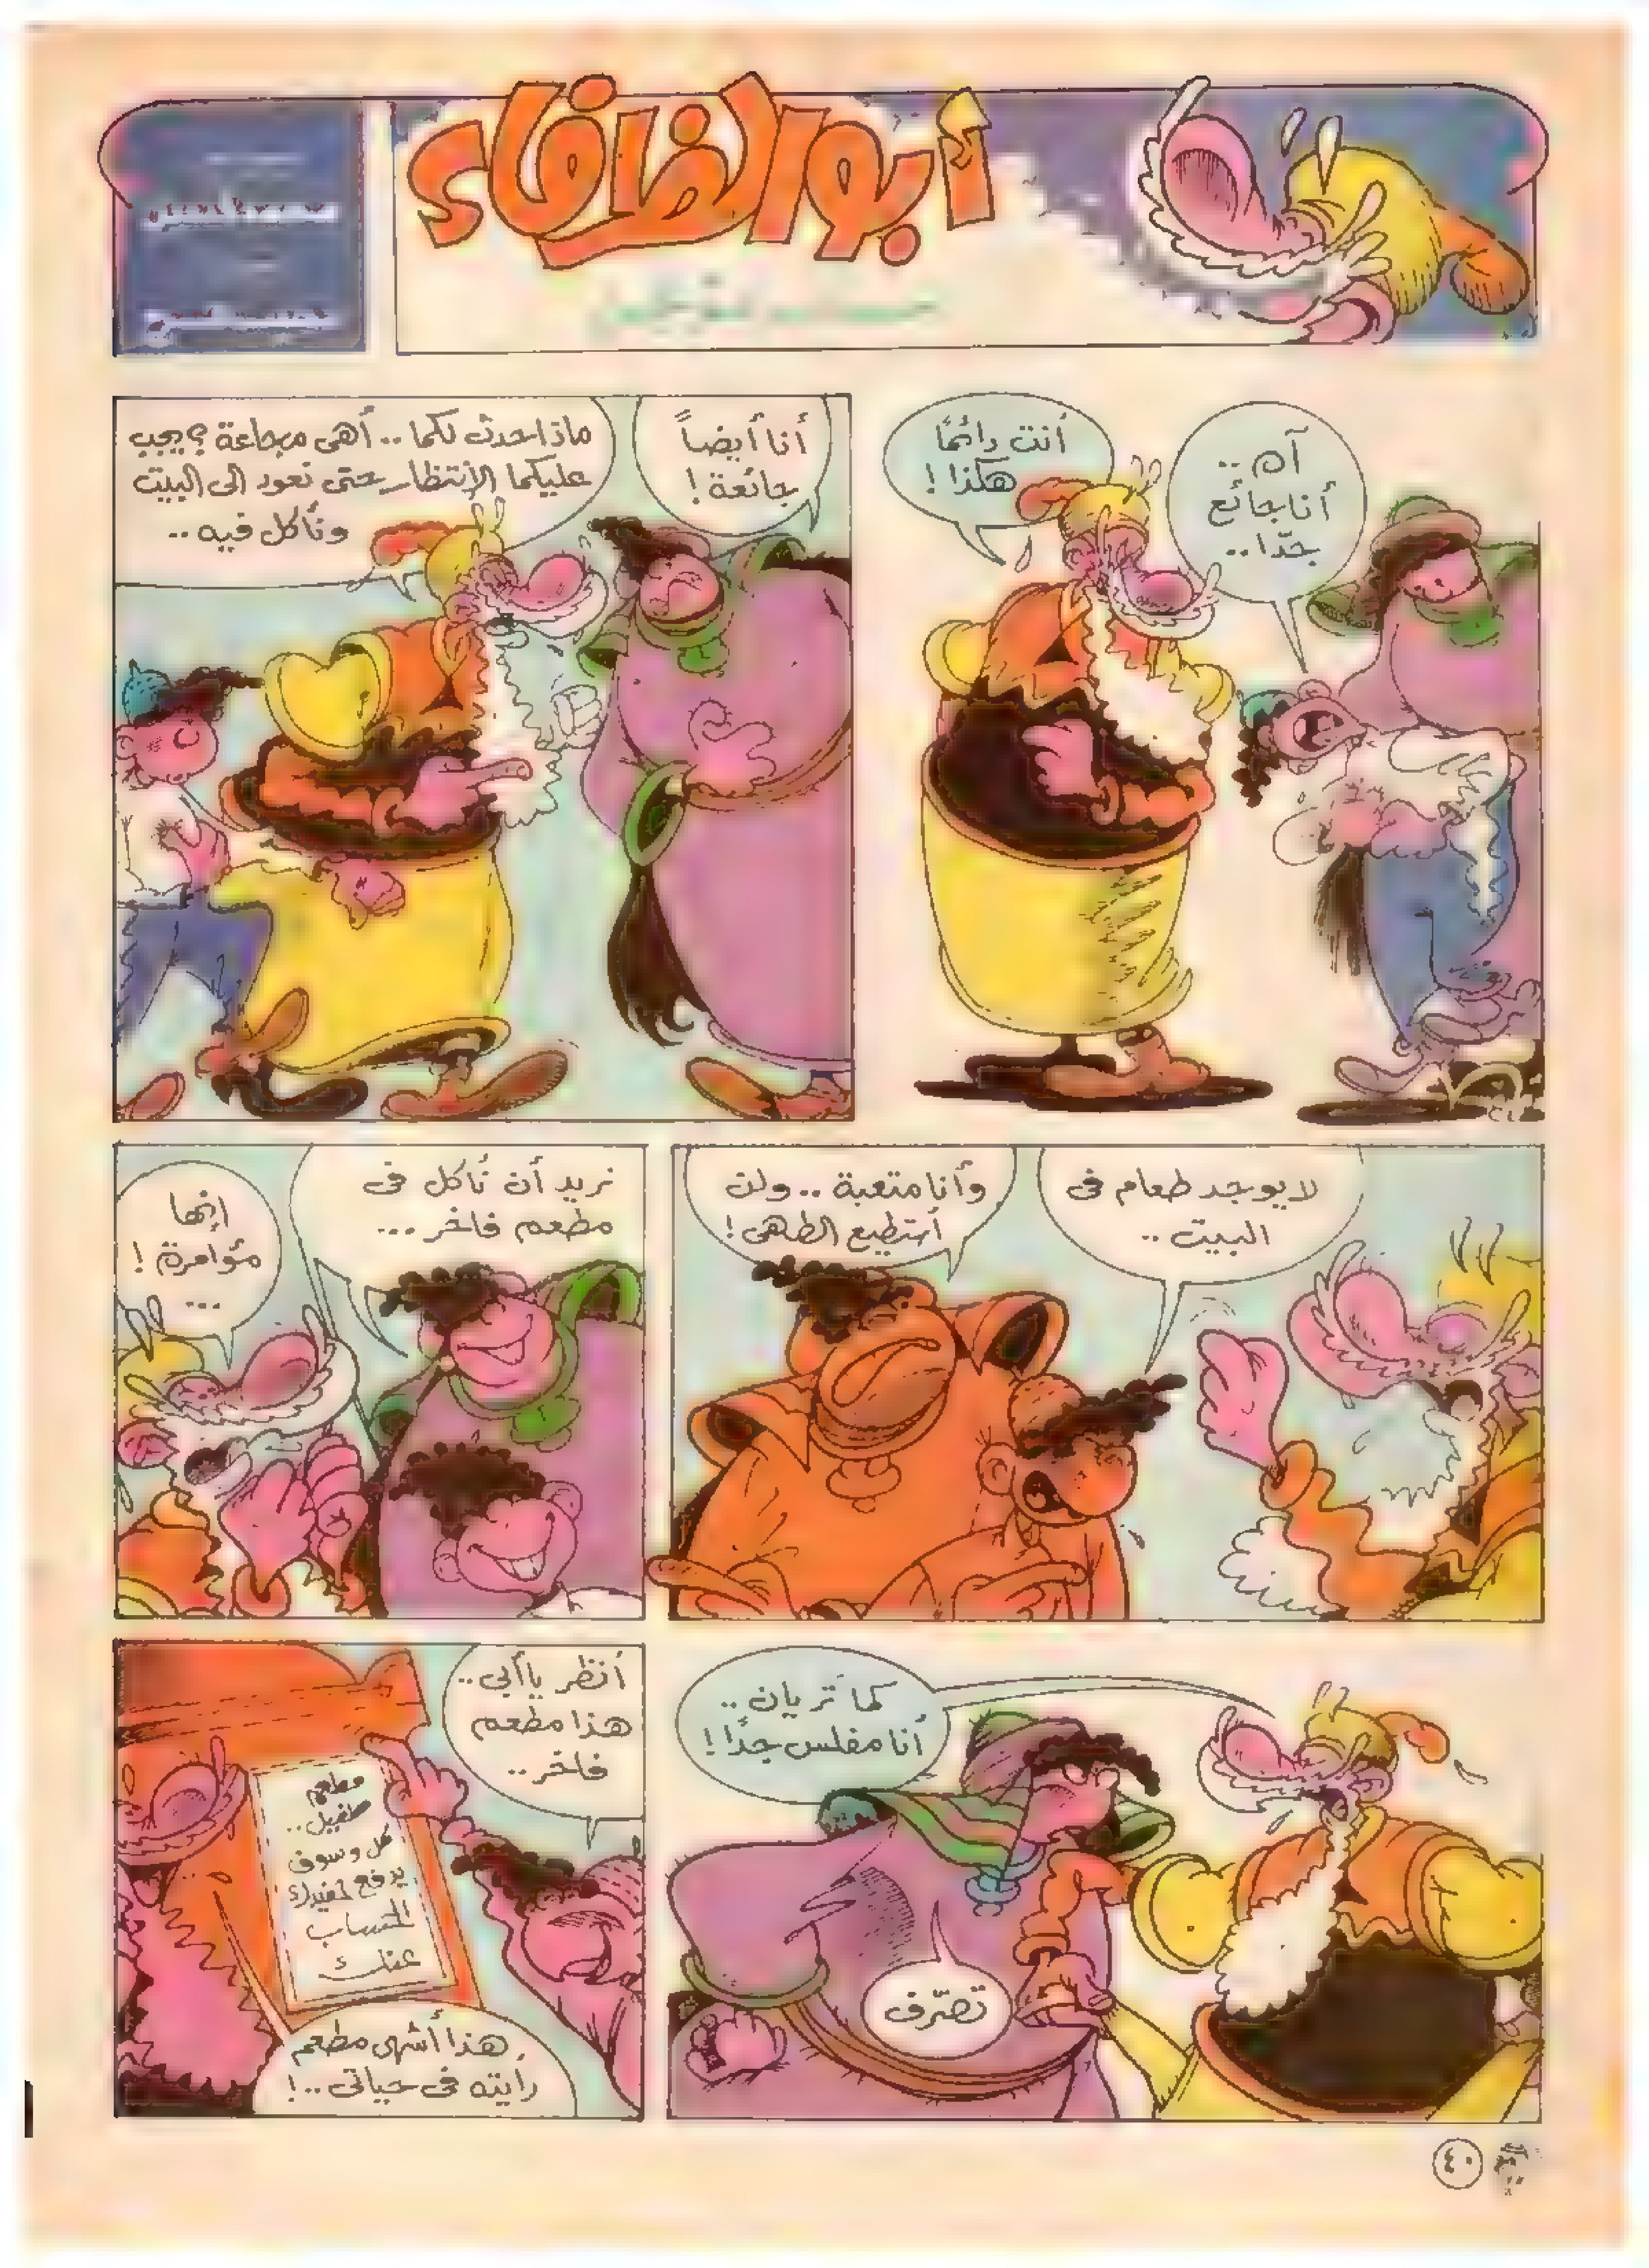 أبو الظرفاء
آه ..
أنا جائع
جدّا ..
أنت دائمًا
هكذا !
أنا أيضاً
جائعة !
ماذا حدث لكما .. أهى مجاعة ؟ يجب
عليكما الإنتظار حتى نعود الى البيت
ونأكل فيه ..
لا يوجد طعام فى
البيت ..
وأنا متعبة .. ولن
أستطيع الطهى !
نريد أن نأكل فى
مطعم فاخر ...
إنها
مؤامرة !
...
كما تريان ..
أنا مفلس جدًا !
تصرّف
أنظر يا أبى ..
هذا مطعم
فاخر ..
مطعم
طفيل ..
كل وسوف
يدفع حفيدك
الحساب
عنك
هذا أشهى مطعم
رأيته فى حياتى .. !
٤٠